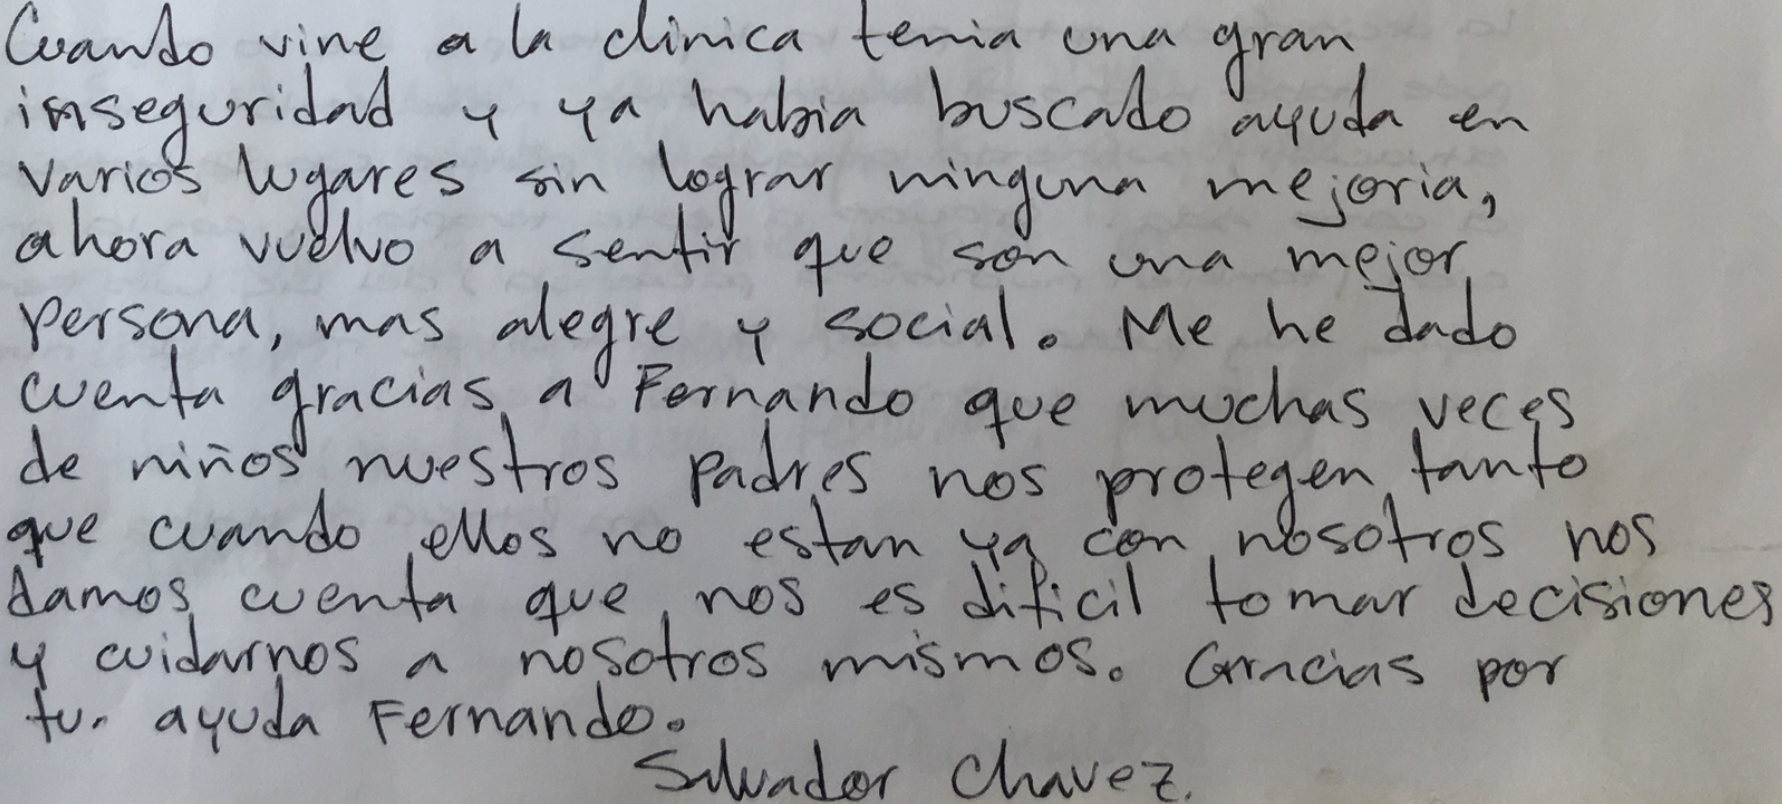 Cuando vine a la clinica tenia una gran
inseguridad y ya habia buscado ayuda en
varios lugares sin lograr ninguna mejoria,
ahora vuelvo a sentir que son una mejor
persona, mas alegre y social. Me he dado
cuenta gracias a Fernando que muchas veces
de niños nuestros padres nos protegen tanto
que cuando ellos no estan ya con nosotros nos
damos cuenta que nos es dificil tomar decisiones
y cuidarnos a nosotros mismos. Gracias por
tu. ayuda Fernando.
Salvador Chavez.